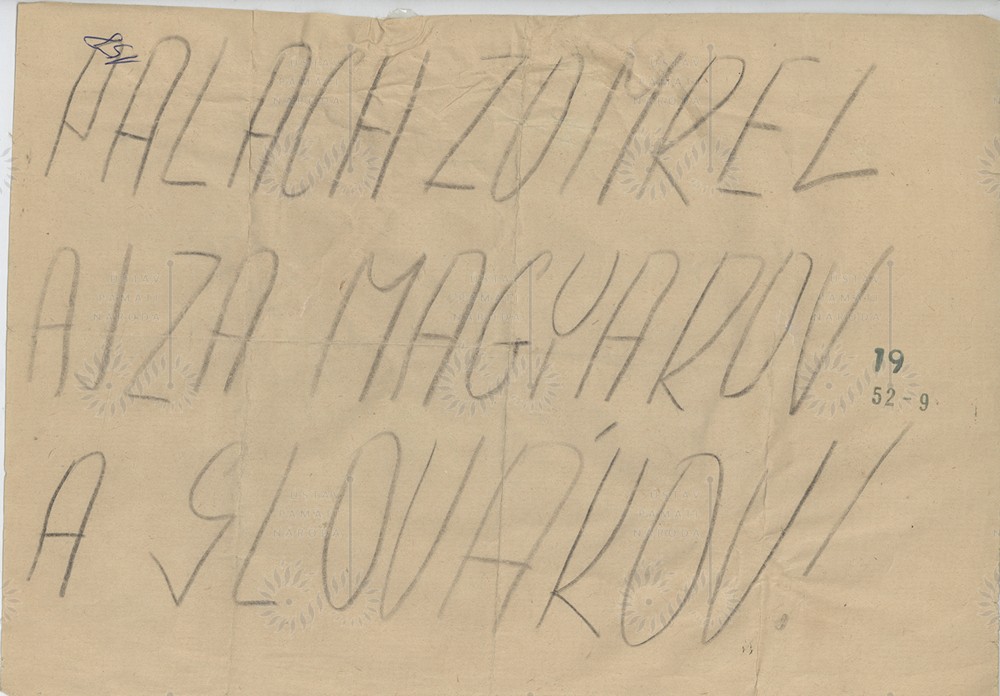 PALACH ZOMREL
AJ ZA MAGYAROV
19
52-9
A SLOVÁKOV!